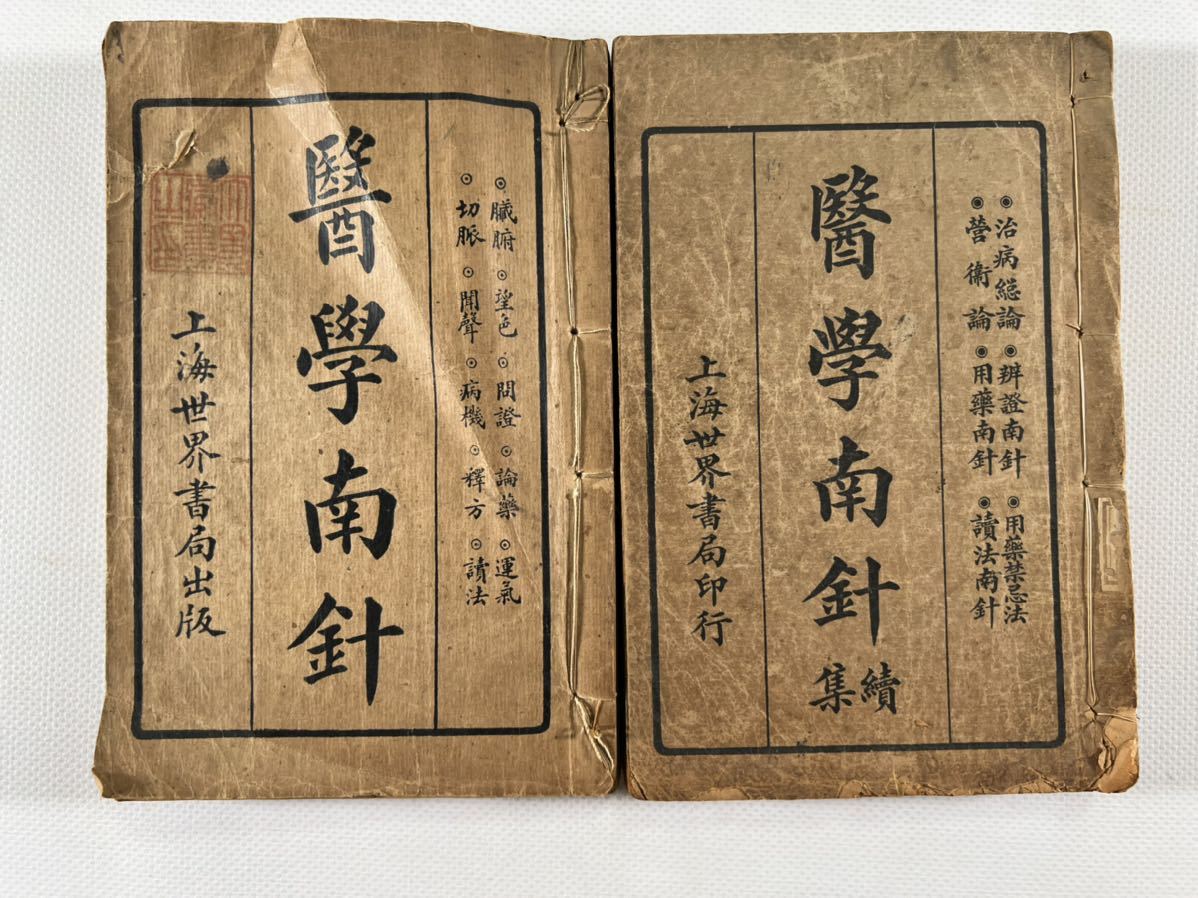 ◉臟腑◉望色◉問證◉論藥◉運氣
◉切脈◉聞聲◉病機◉釋方◉讀法
醫學南針
上海世界書局出版
◉治病總論◉辨證南針◉用藥禁忌法
◉營衛論◉用藥南針◉讀法南針
醫學南針
續集
上海世界書局印行